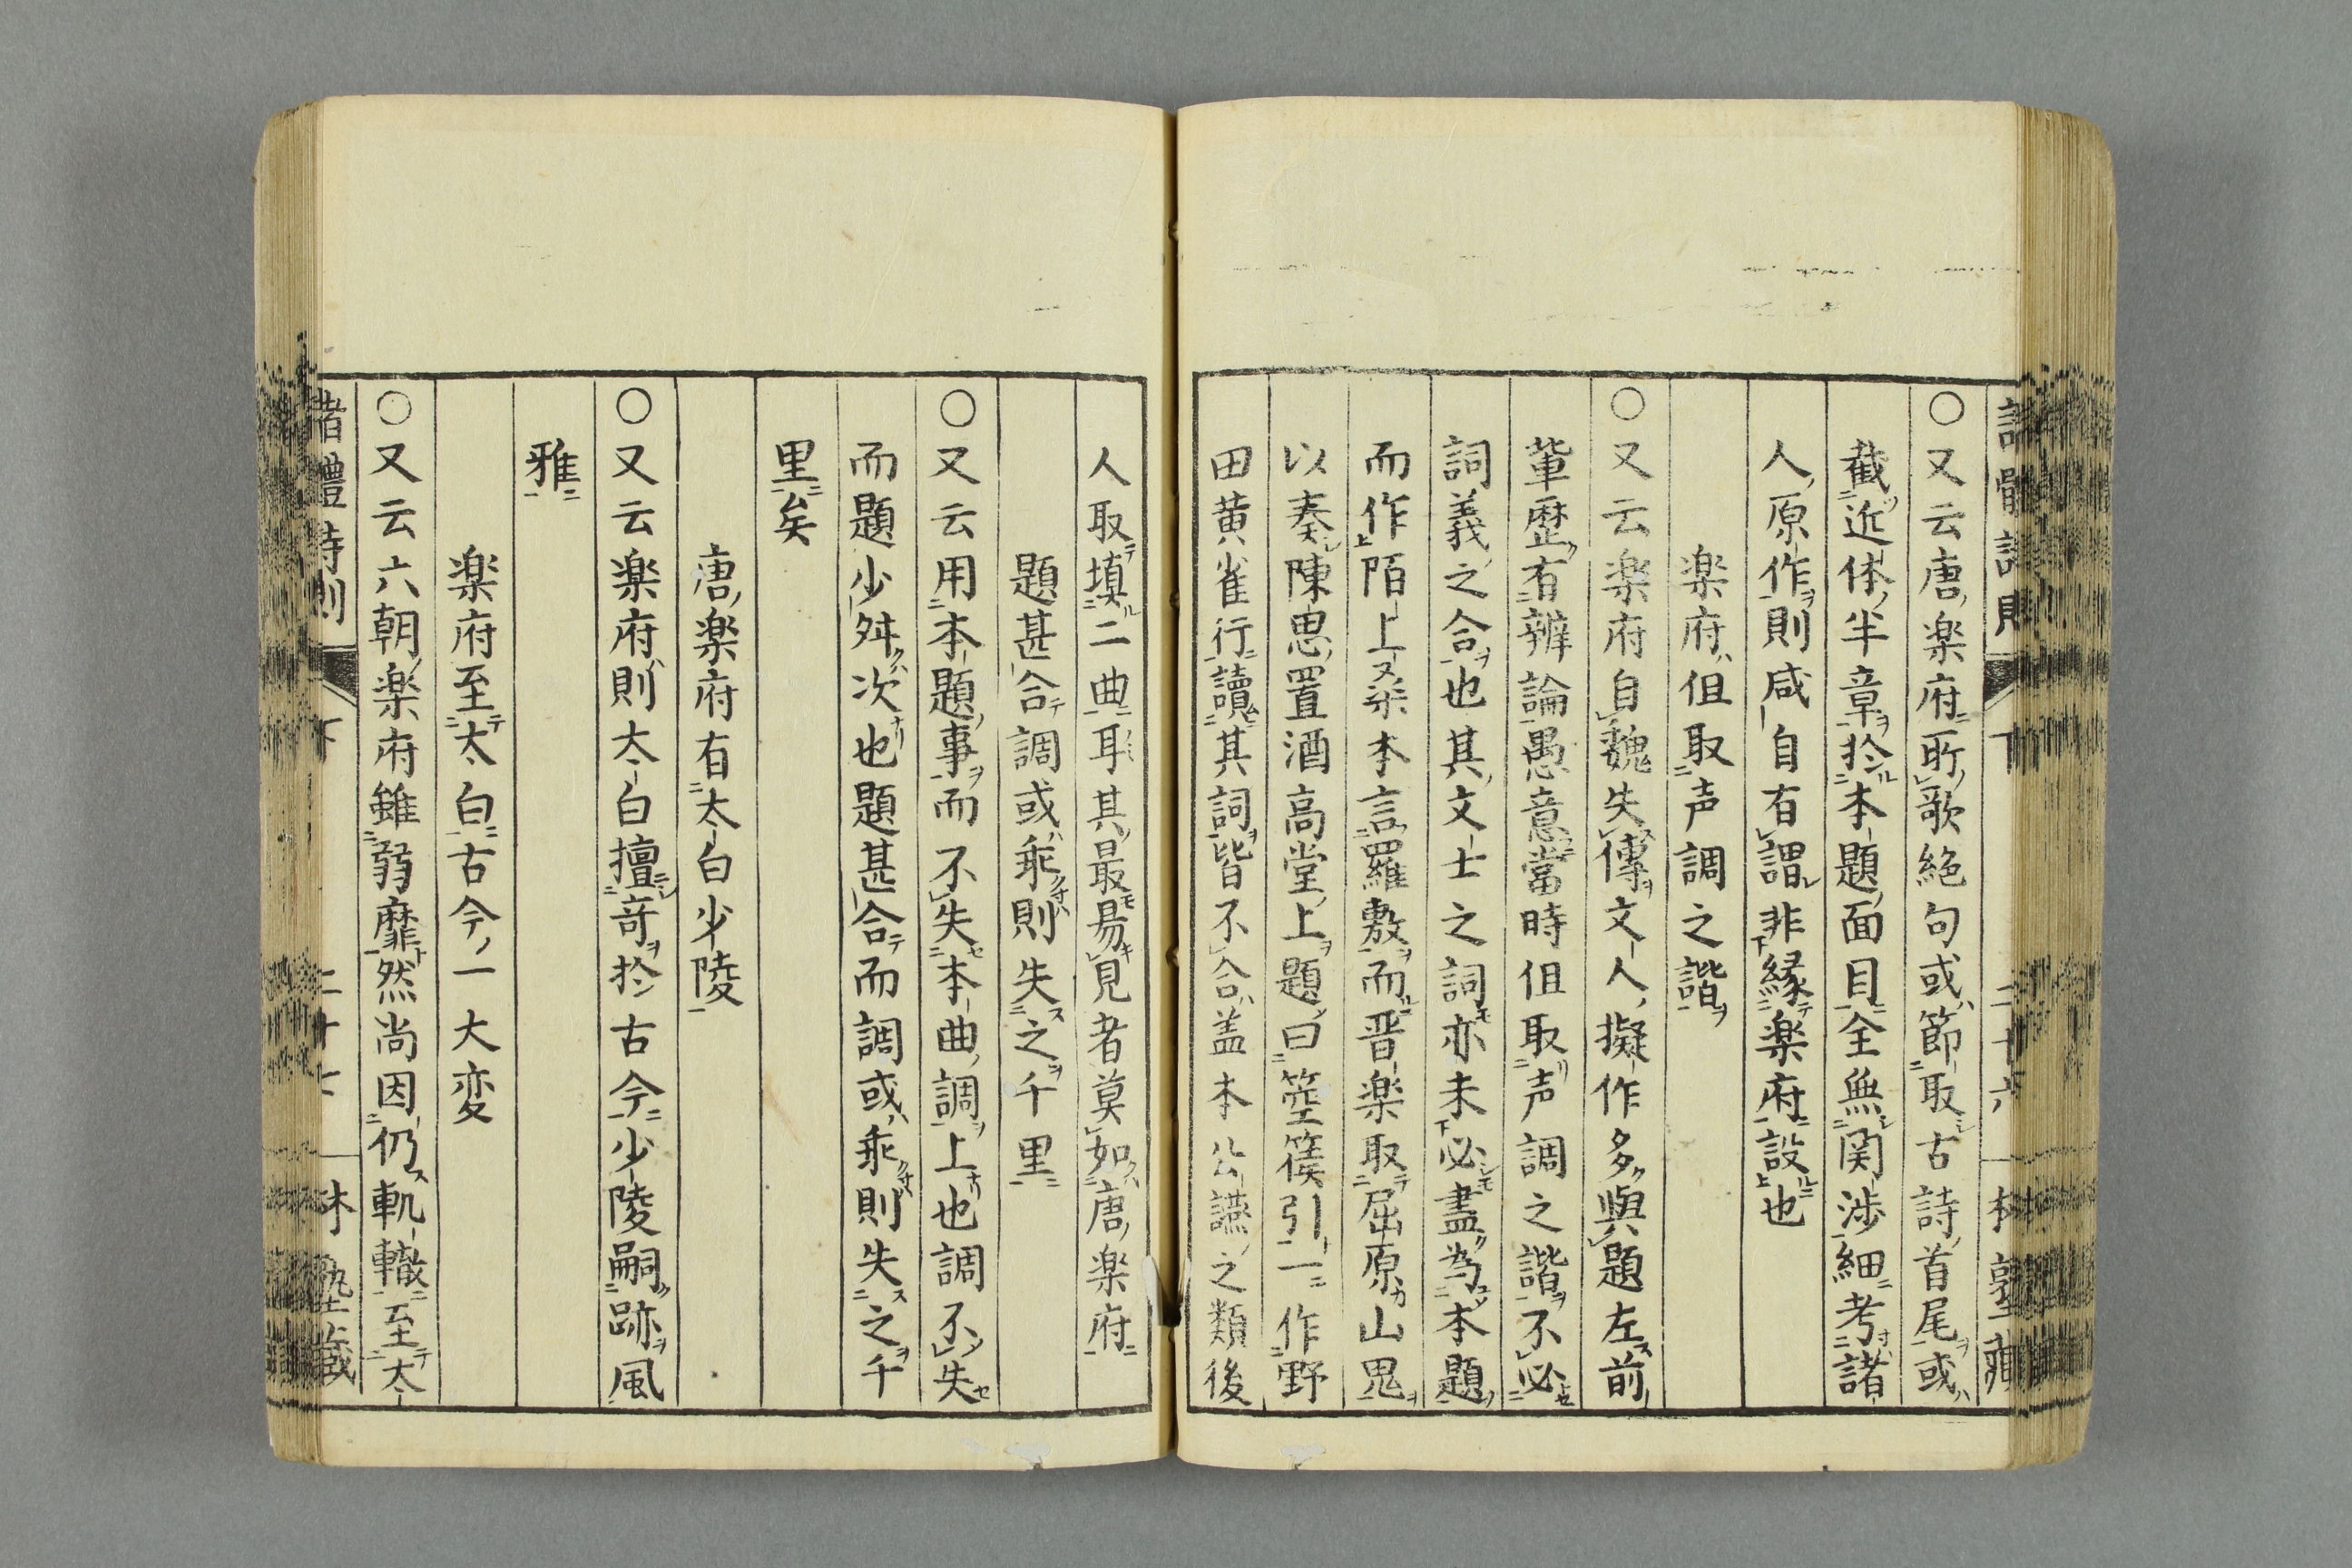 ○又云唐楽府所歌絶句或節取古詩首尾或
截近体半章於本題面目全無関渉細考諸
人原作則咸自有謂非縁楽府設也
楽府但取声調之諧
○又云楽府自魏失傳文人擬作多與題左前
輩歴有辨論愚意當時但取声調之諧不必
詞義之合也其文士之詞亦未必盡為本題
而作陌上桒本言羅敷而晋楽取屈原山鬼
以奏陳思置酒高堂上題曰箜篌引一作野
田黄雀行讀其詞皆不合盖本公讌之類後
人取填二曲耳其最易見者莫如唐楽府
題甚合調或乖則失之千里
○又云用本題事而不失本曲調上也調不失
而題少舛次也題甚合而調或乖則失之千
里矣
唐楽府有太白少陵
○又云楽府則太白擅竒於古今少陵嗣跡風
雅
楽府至太白古今一大変
○又云六朝楽府雖弱靡然尚因仍軌轍至太